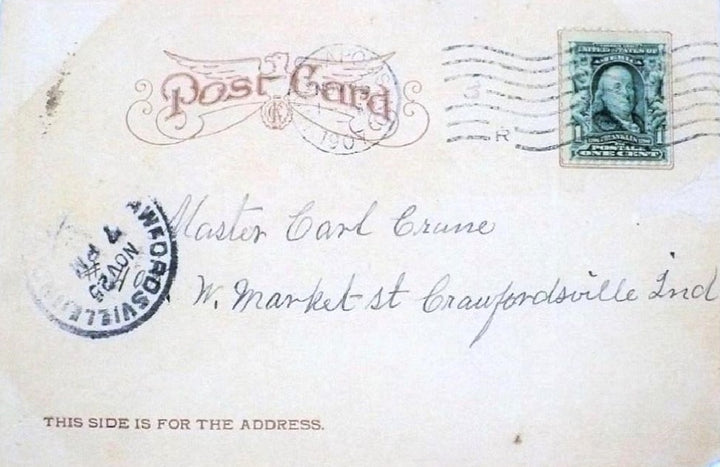 Post Card
1907
R
UNITED STATES OF
FRANKLIN
POSTAGE
ONE CENT
Master Carl Crane
W. Market st Craufordsville Ind
AWFORDSVILLE
7 PM
NOV 25
THIS SIDE IS FOR THE ADDRESS.